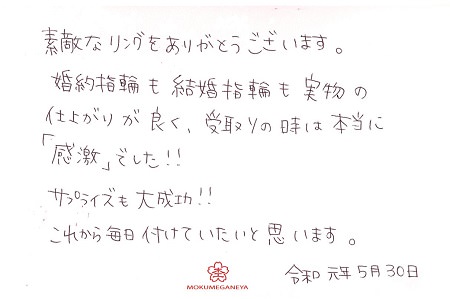 素敵なリングをありがとうございます。
婚約指輪も結婚指輪も実物の
仕上がりが良く、受取りの時は本当に
「感激」でした!!
サプライズも大成功!!
これから毎日付けていたいと思います。
令和 元年 5月30日
MOKUMEGANEYA